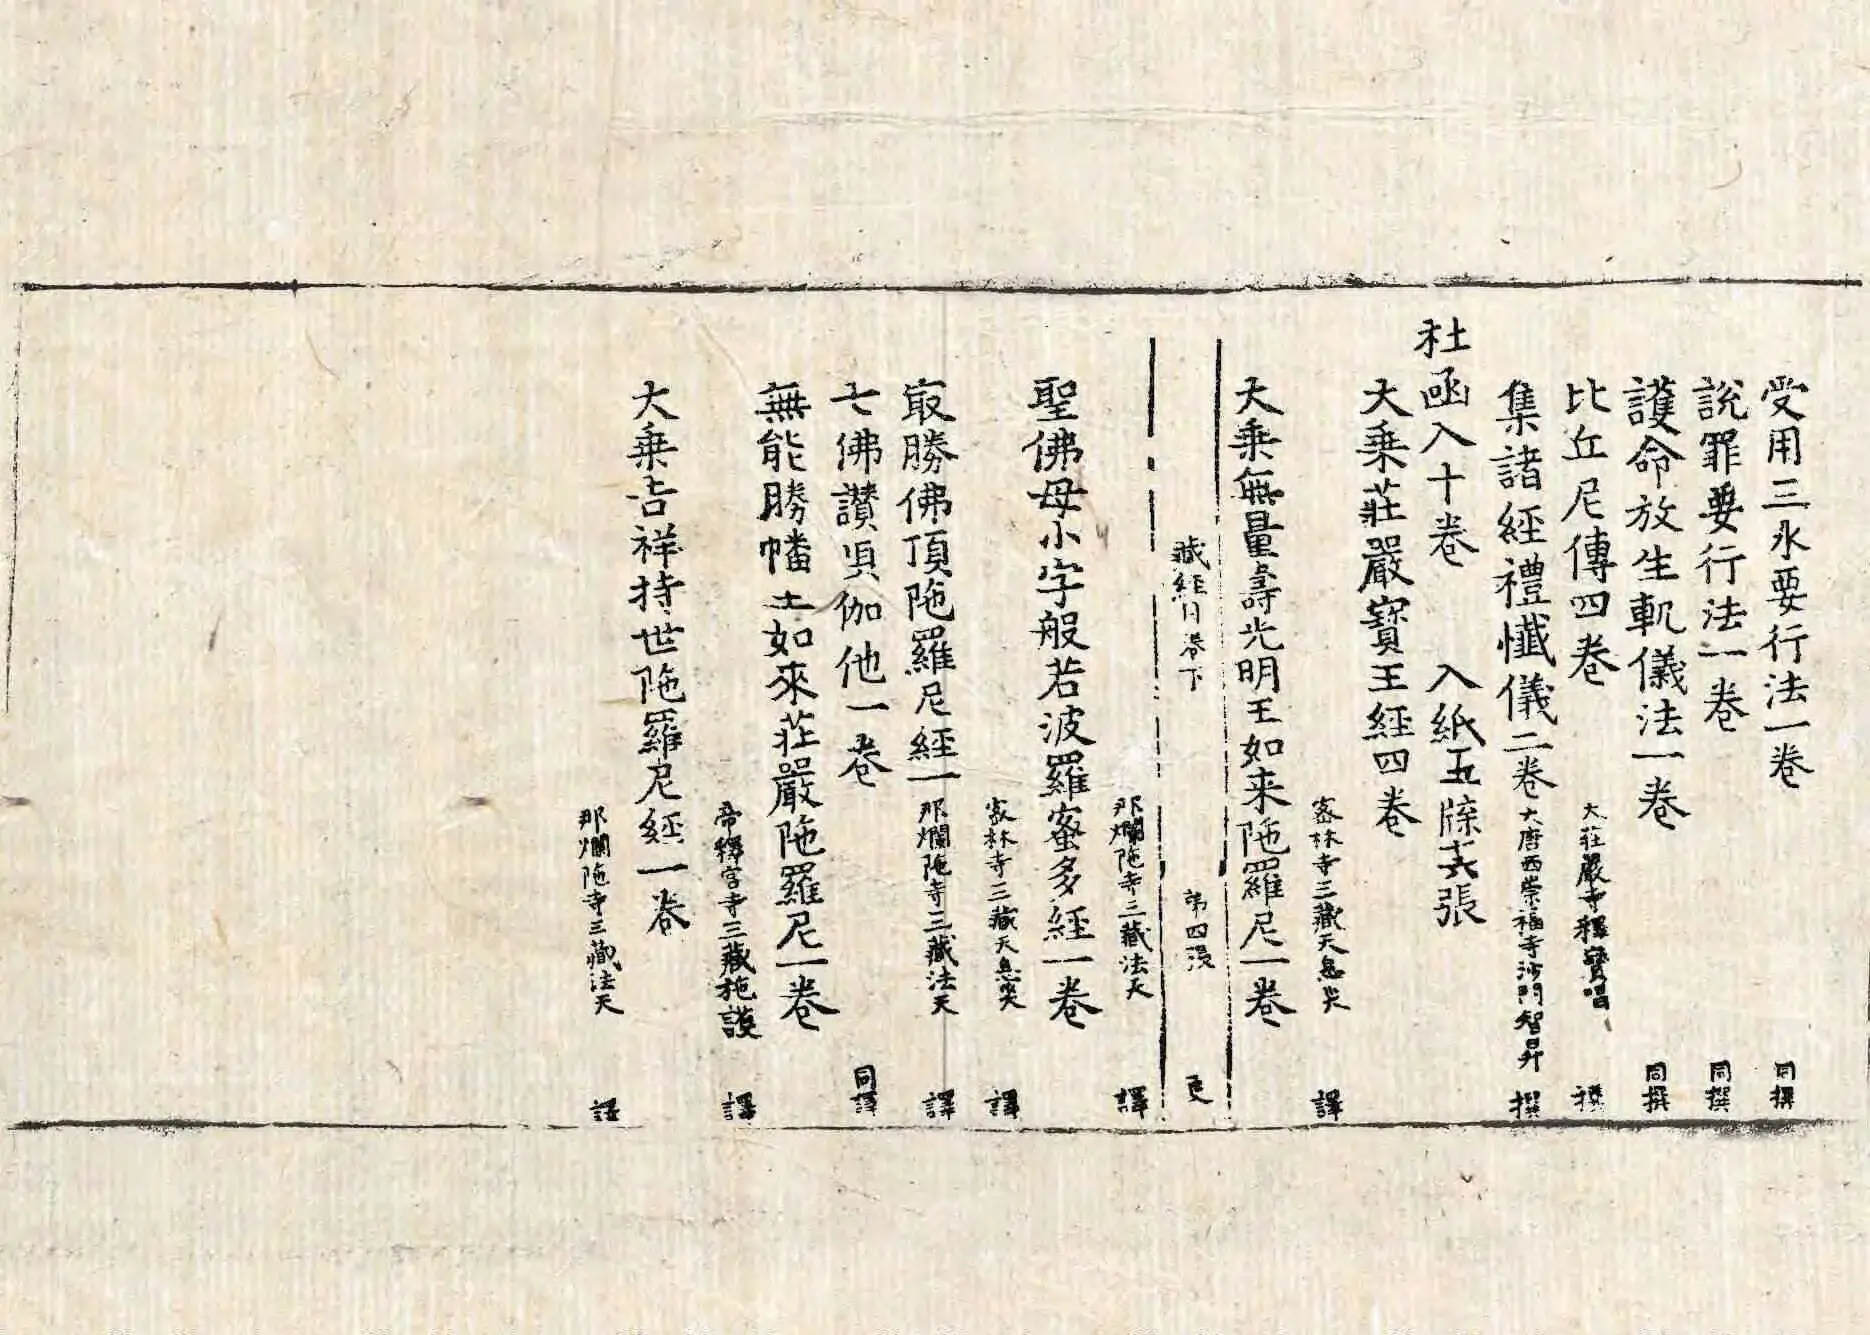 受用三水要行法一卷 同撰
說罪要行法一卷 同撰
護命放生軌儀法一卷 同撰
比丘尼傳四卷 大莊嚴寺釋寶唱 撰
集諸經禮懺儀二卷 大唐西崇福寺沙門智昇 撰
杜函入十卷 入紙五牒 張
大乘莊嚴寶王經四卷
密林寺三藏天息災 譯
大乘無量壽光明王如来陁羅尼一卷
藏經目卷下 第四張
那爛陁寺三藏法天 譯
聖佛母小字般若波羅蜜多經一卷
密林寺三藏天息災 譯
最勝佛頂陁羅尼經一 那爛陁寺三藏法天 譯
七佛讃唄伽他一卷 同譯
無能勝幡王如來莊嚴陁羅尼一卷
帝釋宮寺三藏施護 譯
大乘吉祥持世陁羅尼經一卷
那爛陁寺三藏法天 譯